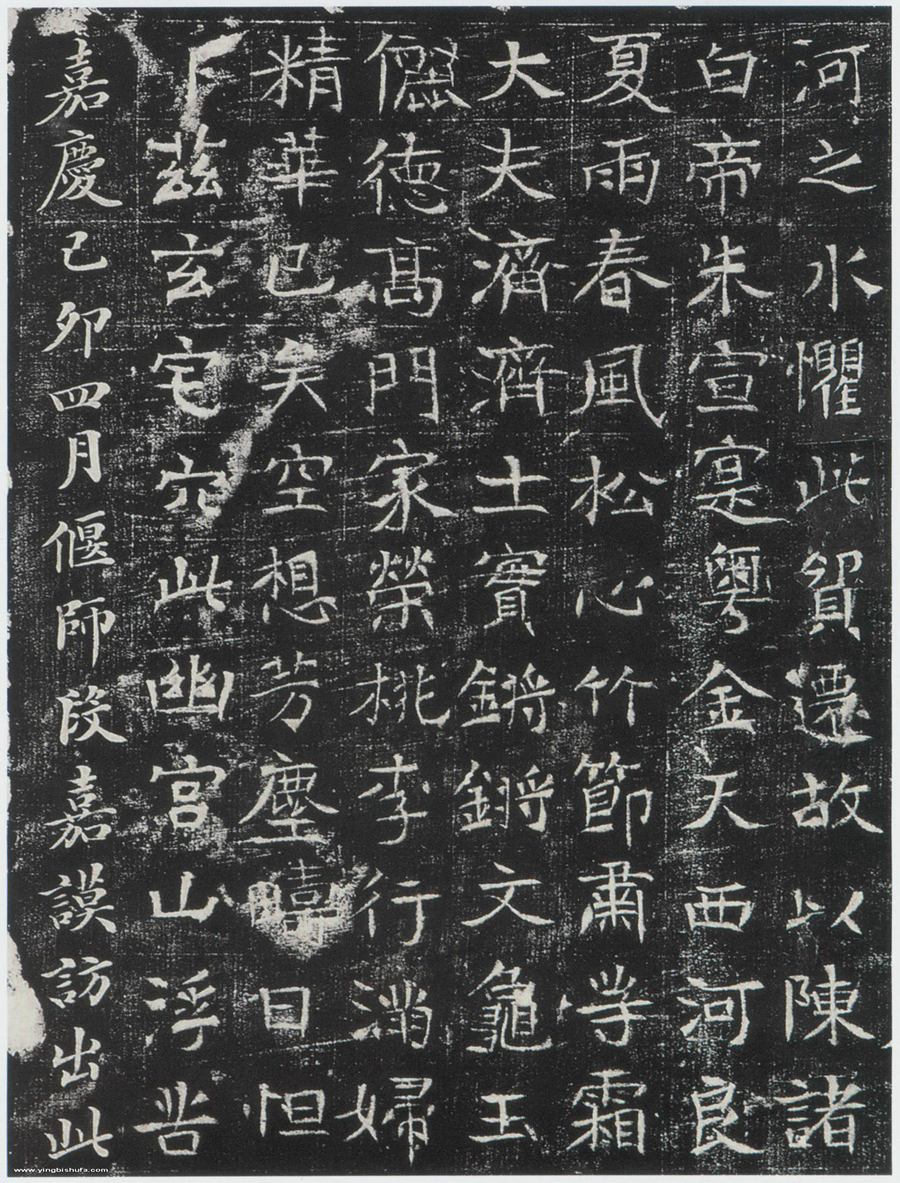 河之水懼此貿遷故以陳諸
白帝朱宣寔粵金天西河良
夏雨春風松心竹節肅學霜
大夫濟濟士實鏘鏘文龜玉
儷德高門家榮桃李行滿婦
精華已矣空想芳塵疇日怛
卜茲玄宅穴此幽宮山浮苦
嘉慶己卯四月偃師段嘉謨訪出此
www.yingbishufa.com